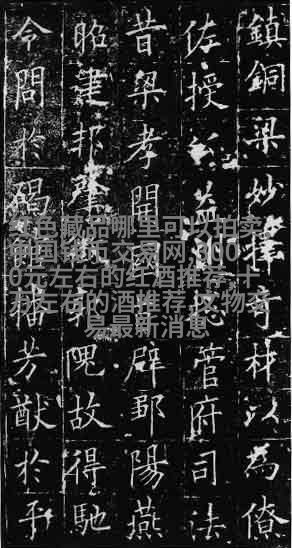 鎮銅梁妙擇奇材以為僚
佐授益總管府司法
昔梁孝開國首辟鄒陽燕
昭建邦肇徵郭隗故得馳
令問於碣館播芳猷於平
色藏品哪里可以拍卖,
中国钱币交易网,100
0元左右的红酒推荐,十
万左右的酒推荐,文物交
易最新消息